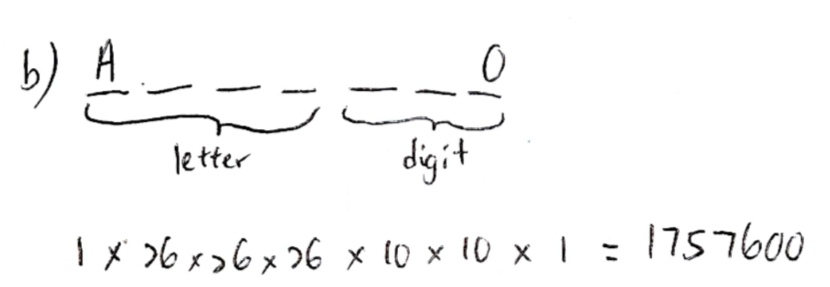 b) A _ _ _ _ _ 0
letter digit
1 × 26 × 26 × 26 × 10 × 10 × 1 = 1757600